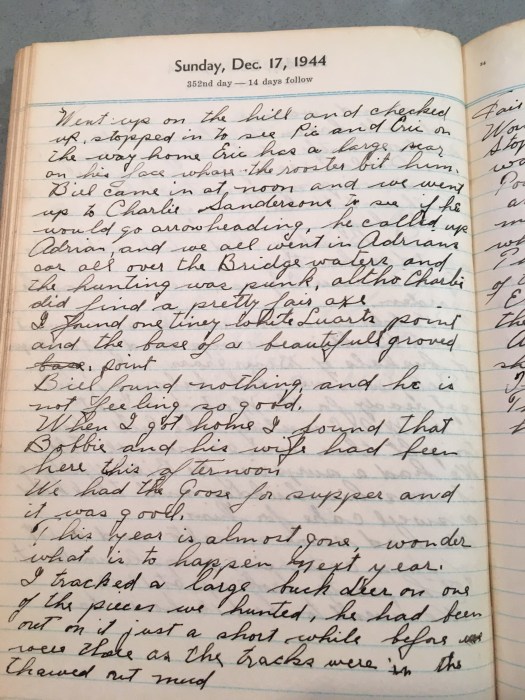 Sunday, Dec. 17, 1944
352nd day — 14 days follow
Went up on the hill and checked
up, stopped in to see Pic and Eric on
the way home Eric has a large scar
on his face whare the rooster bit him.
Bill came in at noon and we went
up to Charlie Sandersons to see if he
would go arrowheading, he called up
Adrian, and we all went in Adrians
car all over the Bridgewaters and
the hunting was punk, altho Charlie
did find a pretty fair axe
I found one tiney white Quartz point
and the base of a beautifull groved
base. point
Bill found nothing, and he is
not feeling so good.
When I got home I found that
Bobbie and his wife had been
here this afternoon
We had the Goose for supper and
it was good.
This year is almost gone, wonder
what is to happen next year.
I tracked a large buck deer on one
of the pieces we hunted, he had been
out on it just a short while before we
were thare as the tracks were in the
thawed out mud